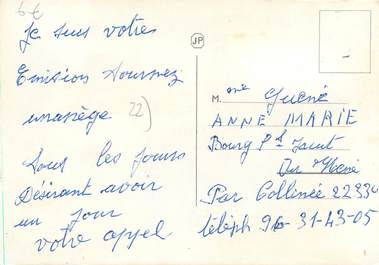 6€
Je suis votre
Emission Tournez
manège 22)
Tous les jours
Désirant avoir
un jour
votre appel
JP
M me Guené
ANNE MARIE
Bourg St
Du Mené
Par Collinée 22330
téléph 96-31-43-05